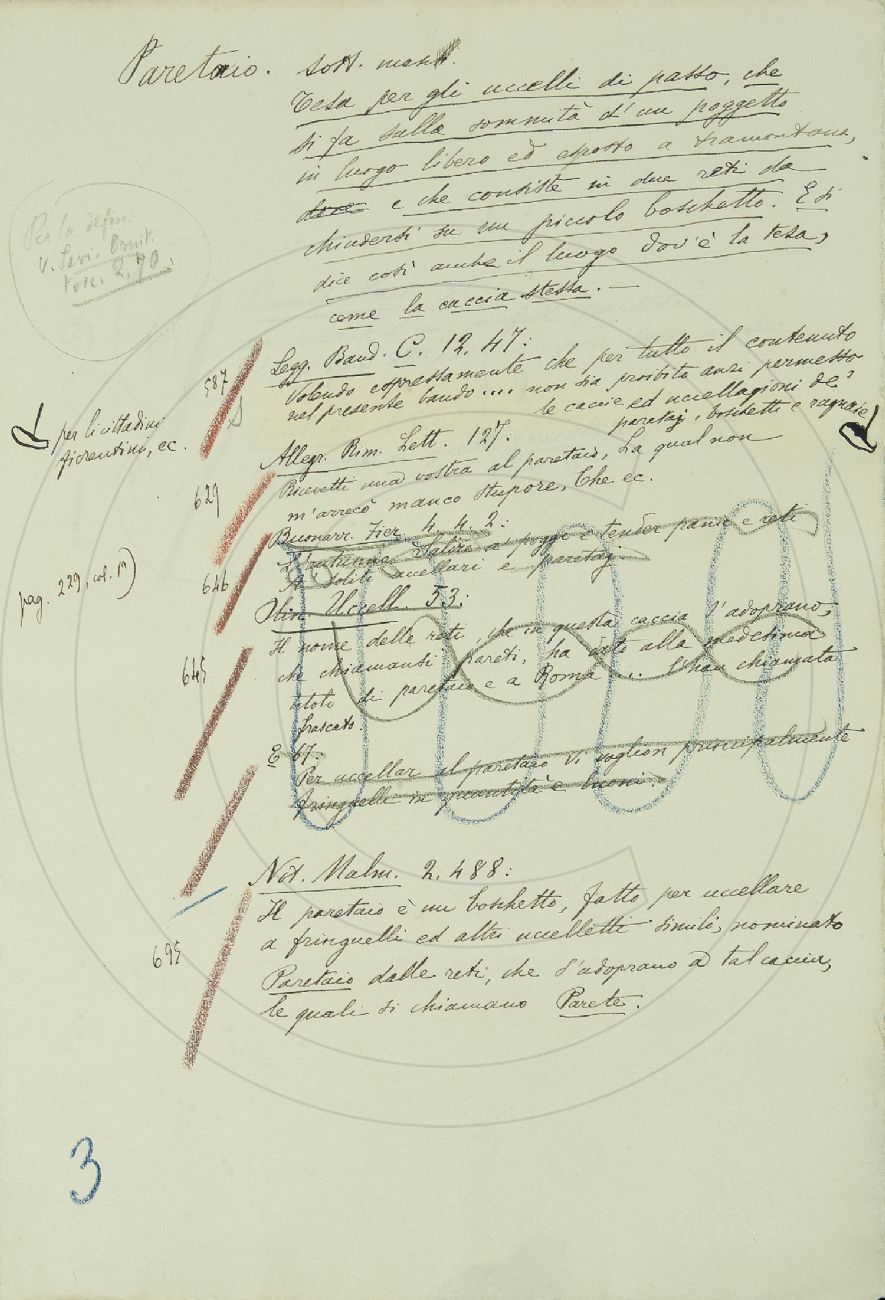 Paretaio. sost. masch.
Tesa per gli uccelli di passo, che
si fa sulla sommità d'un poggetto
in luogo libero ed esposto a tramontana,
dove e che consiste in due reti da
chiudersi su un piccolo boschetto. E si
dice così anche il luogo dov'è la tesa,
come la caccia stessa. —
Per la defin.
V. Savi. Ornit.
tosc. 2, 70.
587
Legg. Band. C. 12. 47:
Volendo espressamente che per tutto il contenuto
nel presente bando .... non sia proibito anzi permesso
per li cittadini
fiorentini, ec.
le caccie ed uccellagioni de'
paretaj, boschetti e ragnaie
629
Allegr. Rim. Lett. 127.
Ricevetti una vostra al paretaio, La qual non
m'arrecò manco stupore, Che ec.
646
Buonarr. Fier. 4. 4. 2:
L'autunno salire a' poggi e tender panie e reti
A' soliti uccellari e paretaj
pag. 229, col. 1ª)
645
Olin. Uccell. 53:
Il nome delle reti, che in questa caccia s'adoprano,
che chiamansi pareti, ha dato alla medesima
titolo di paretaio e a Roma ... l'han chiamata
frascato.
E 67:
Per uccellar al paretaio vi soglion principalmente
fringuelli in quantità e buoni.
695
Not. Malm. 2. 488:
Il paretaio è un boschetto, fatto per uccellare
a fringuelli ed altri uccelletti simili, nominato
Paretaio dalle reti, che s'adoprano a tal caccia,
le quali si chiamano Parete.
3